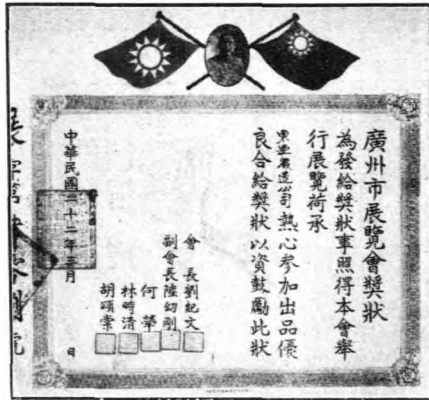 廣州市展覽會獎狀
為發給獎狀事照得本會舉
行展覽荷承
熱心參加出品優
良合給獎狀以資鼓勵此狀
會 長劉紀文
副會長陸幼剛
何犖
林時清
胡頌棠
中華民國二十二年三月 日